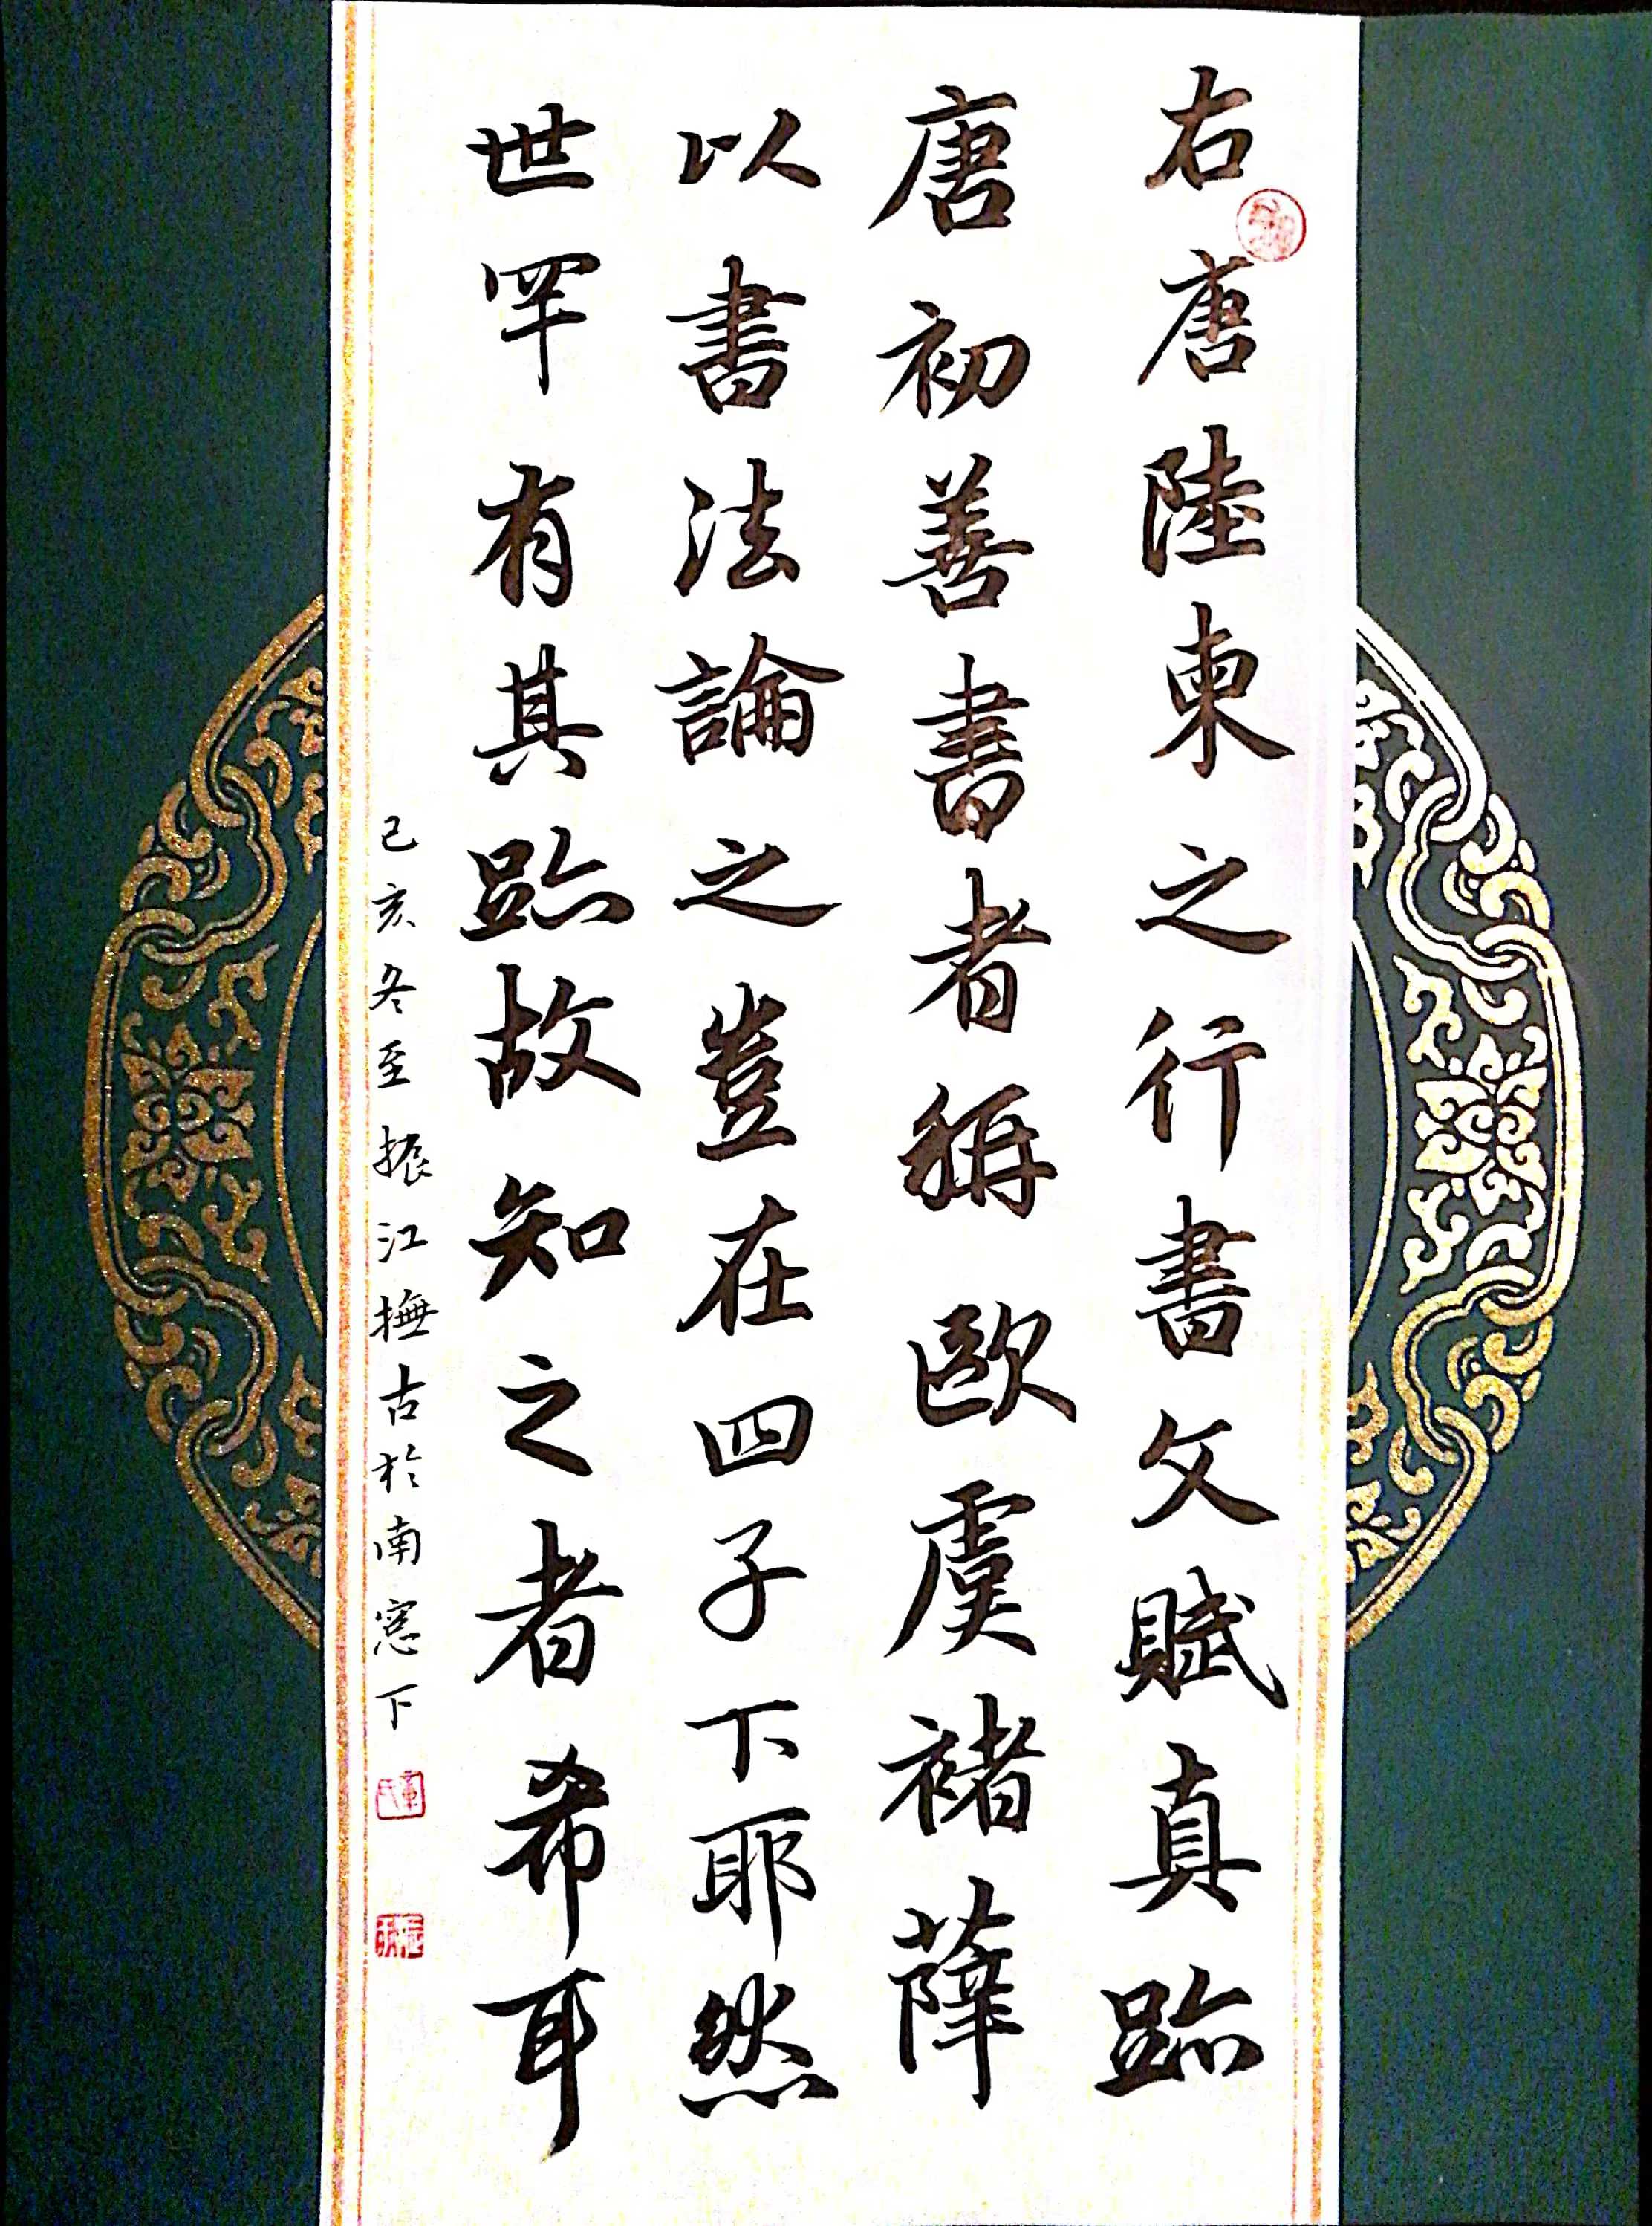 右唐陸柬之行書文賦真跡
唐初善書者稱歐虞褚薛
以書法論之豈在四子下耶然
世罕有其跡故知之者希耳
己亥冬至振江撫古於南窓下